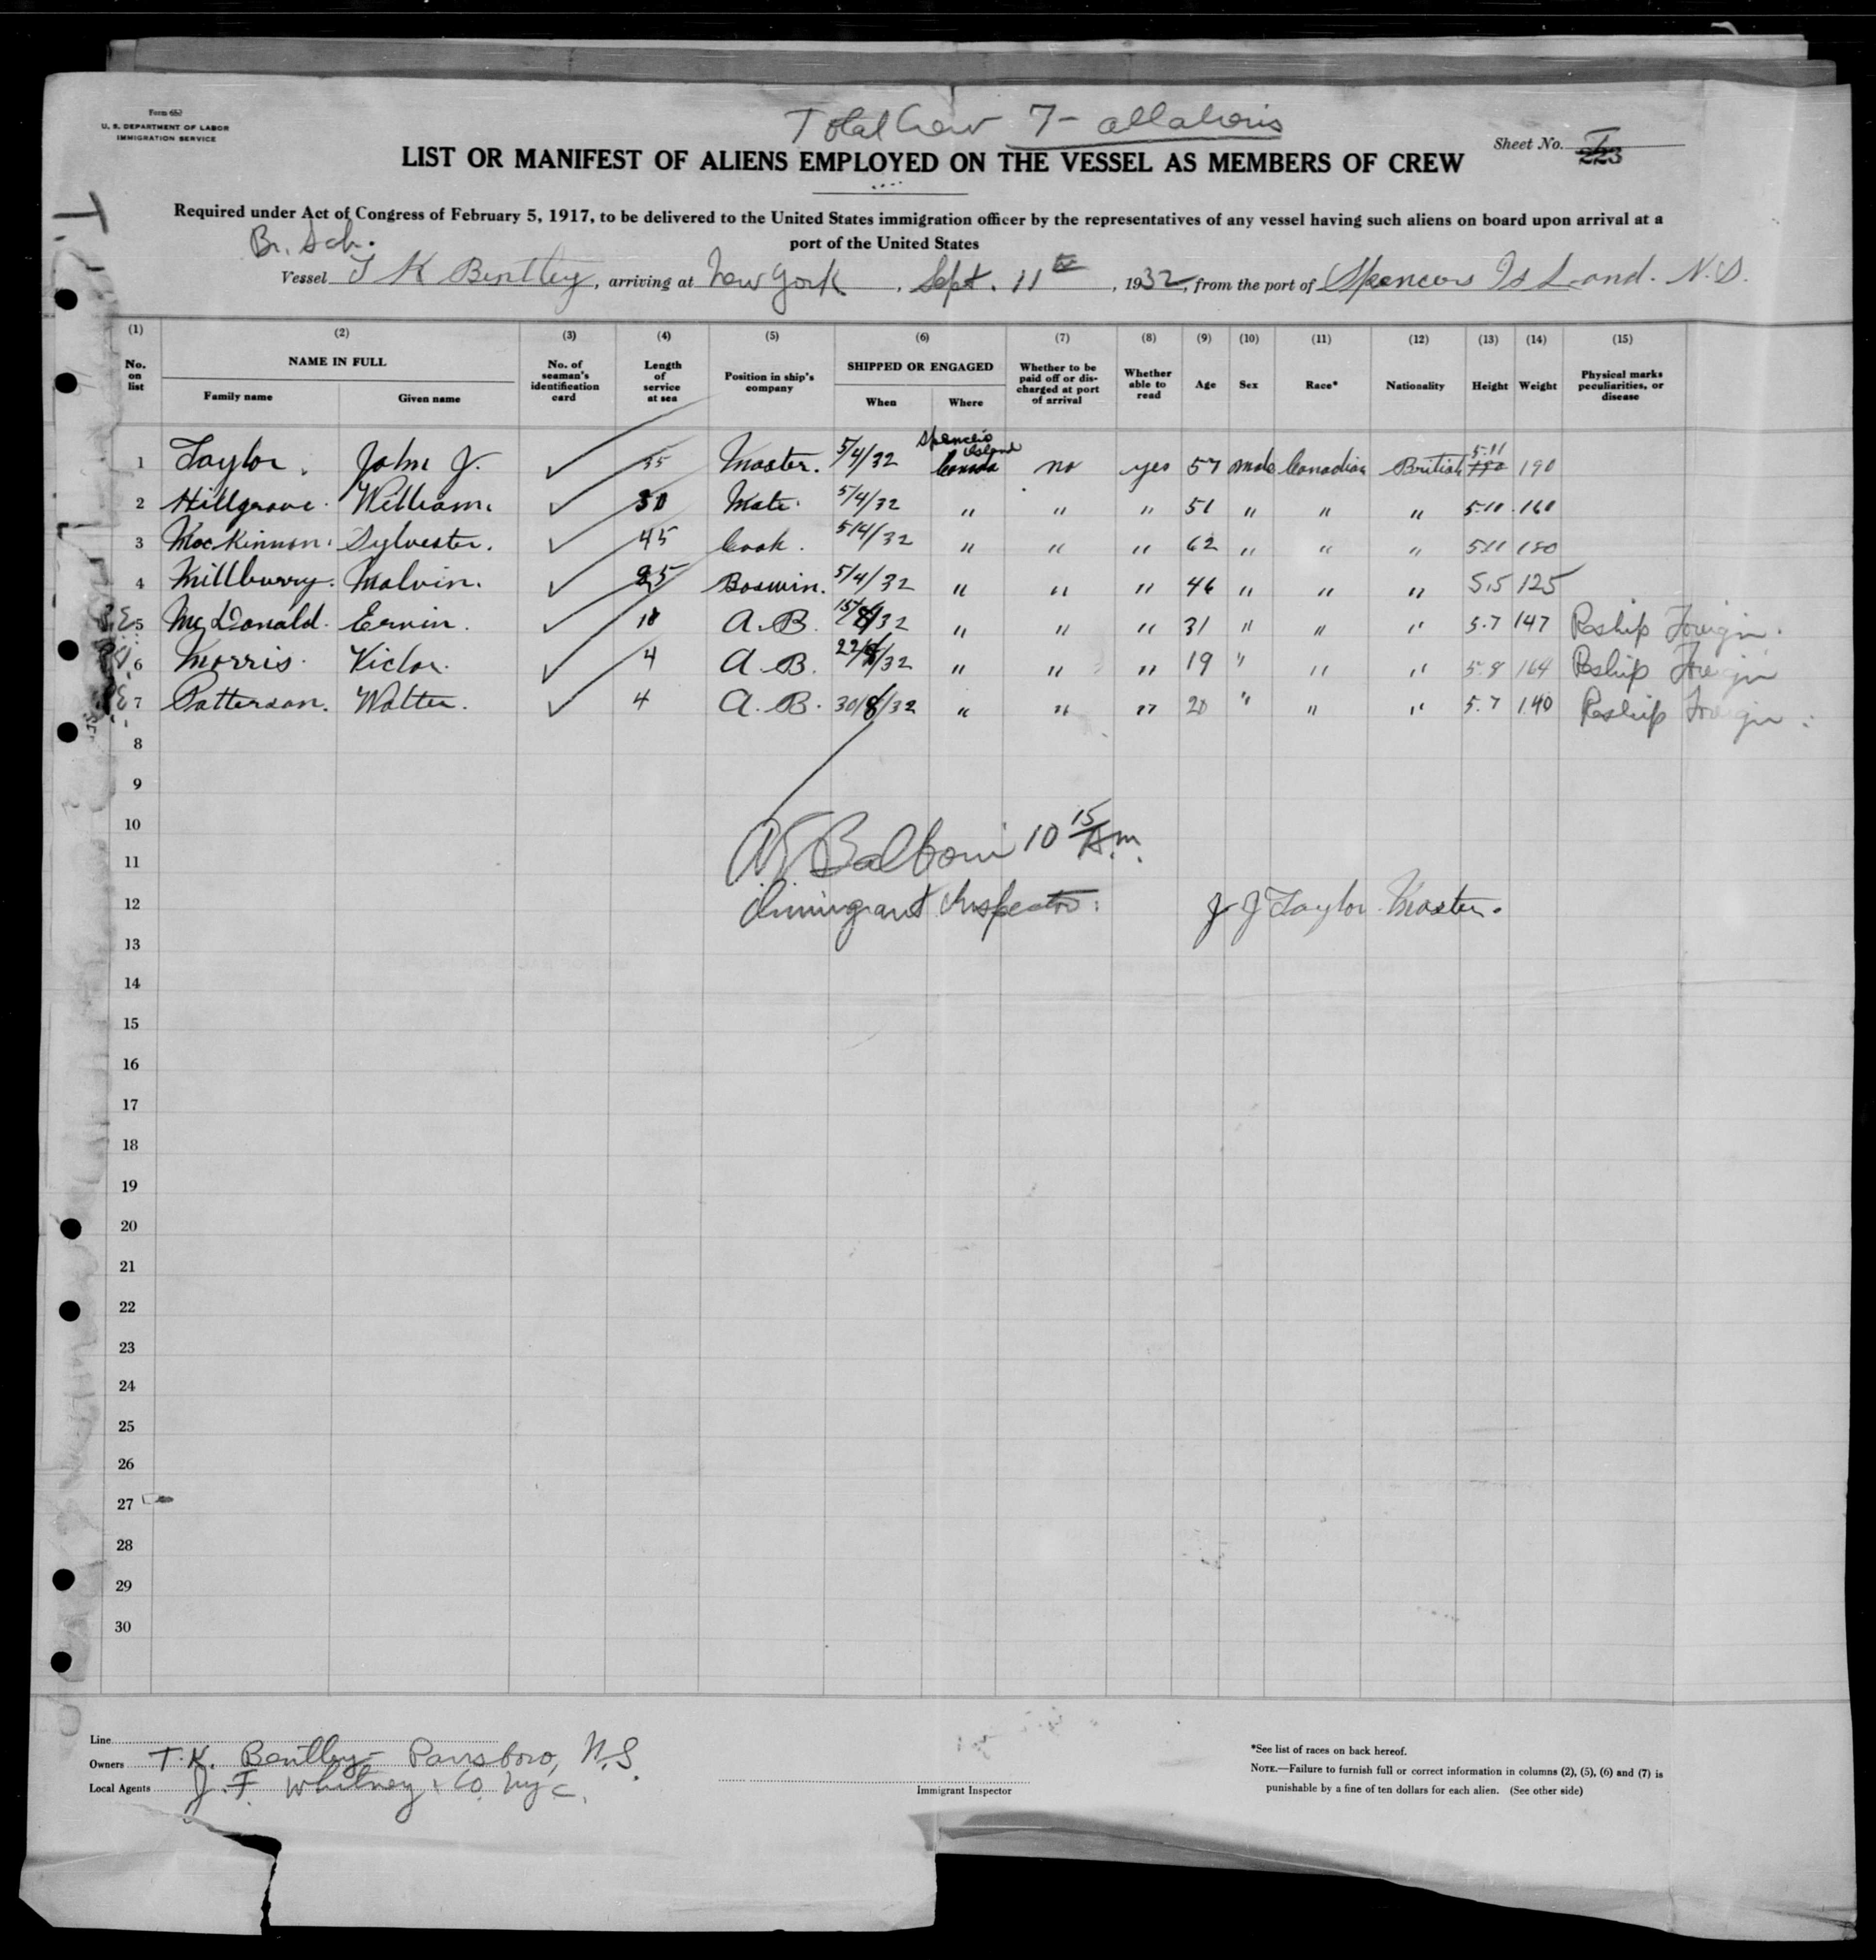 Form 687
U. S. DEPARTMENT OF LABOR
IMMIGRATION SERVICE
Total Crew 7 - all aliens
Sheet No. 1 223
LIST OR MANIFEST OF ALIENS EMPLOYED ON THE VESSEL AS MEMBERS OF CREW
Required under Act of Congress of February 5, 1917, to be delivered to the United States immigration officer by the representatives of any vessel having such aliens on board upon arrival at a
port of the United States
Br. Sch.
Vessel T K Bentley, arriving at New York, Sept. 11th, 1932, from the port of Spencers Island. N.S.
(1) (2) (3) (4) (5) (6) (7) (8) (9) (10) (11) (12) (13) (14) (15)
No. on list NAME IN FULL Family name Given name No. of seaman's identification card Length of service at sea Position in ship's company SHIPPED OR ENGAGED When Where Whether to be paid off or discharged at port of arrival Whether able to read Age Sex Race* Nationality Height Weight Physical marks peculiarities, or disease
1 Taylor. John J. ✓ 35 Master. 5/4/32 Spencer's Island Canada no yes 57 male Canadian British 5-11 190
2 Hillgrove. William. ✓ 30 Mate. 5/4/32 " " " 51 " " " 5-10 160
3 MacKinnon. Sylvester. ✓ 45 Cook. 5/4/32 " " " 62 " " " 5-11 180
4 Millburry. Malvin. ✓ 25 Boswin. 5/4/32 " " " 46 " " " 5.5 125
5 McDonald. Ervin. ✓ 18 A.B. 15/8/32 " " " 31 " " " 5.7 147 Reship Foreign.
6 Morris. Victor. ✓ 4 A.B. 22/8/32 " " " 19 " " " 5.8 164 Reship Foreign
7 Patterson. Walter. ✓ 4 A.B. 30/8/32 " " " 20 " " " 5.7 140 Reship Foreign.
8
9
10
11
10 15 A.m.
12
Immigrant Inspector.
J J Taylor Master.
13
14
15
16
17
18
19
20
21
22
23
24
25
26
27
28
29
30
Line
Owners T.K. Bentley - Parrsboro, N.S.
Local Agents J. F. Whitney & Co. NYC.
Immigrant Inspector
*See list of races on back hereof.
NOTE.—Failure to furnish full or correct information in columns (2), (5), (6) and (7) is
punishable by a fine of ten dollars for each alien. (See other side)